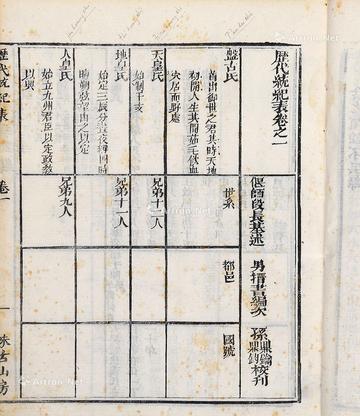 歷代統紀表卷之一
偃師段長基述
男搢書編次
孫鼎鑰
鼎鈞校刊
世系
都邑
國號
盤古氏
首出御世之君其時天地
初開人生其間茹毛飲血
穴居而野處
天皇氏
始制干支
兄弟十二人
地皇氏
始定三辰分晝夜
兄弟十一人
人皇氏
始立九州君臣以定政教
以興
兄弟九人
歷代統紀表
卷一
一
味古山房